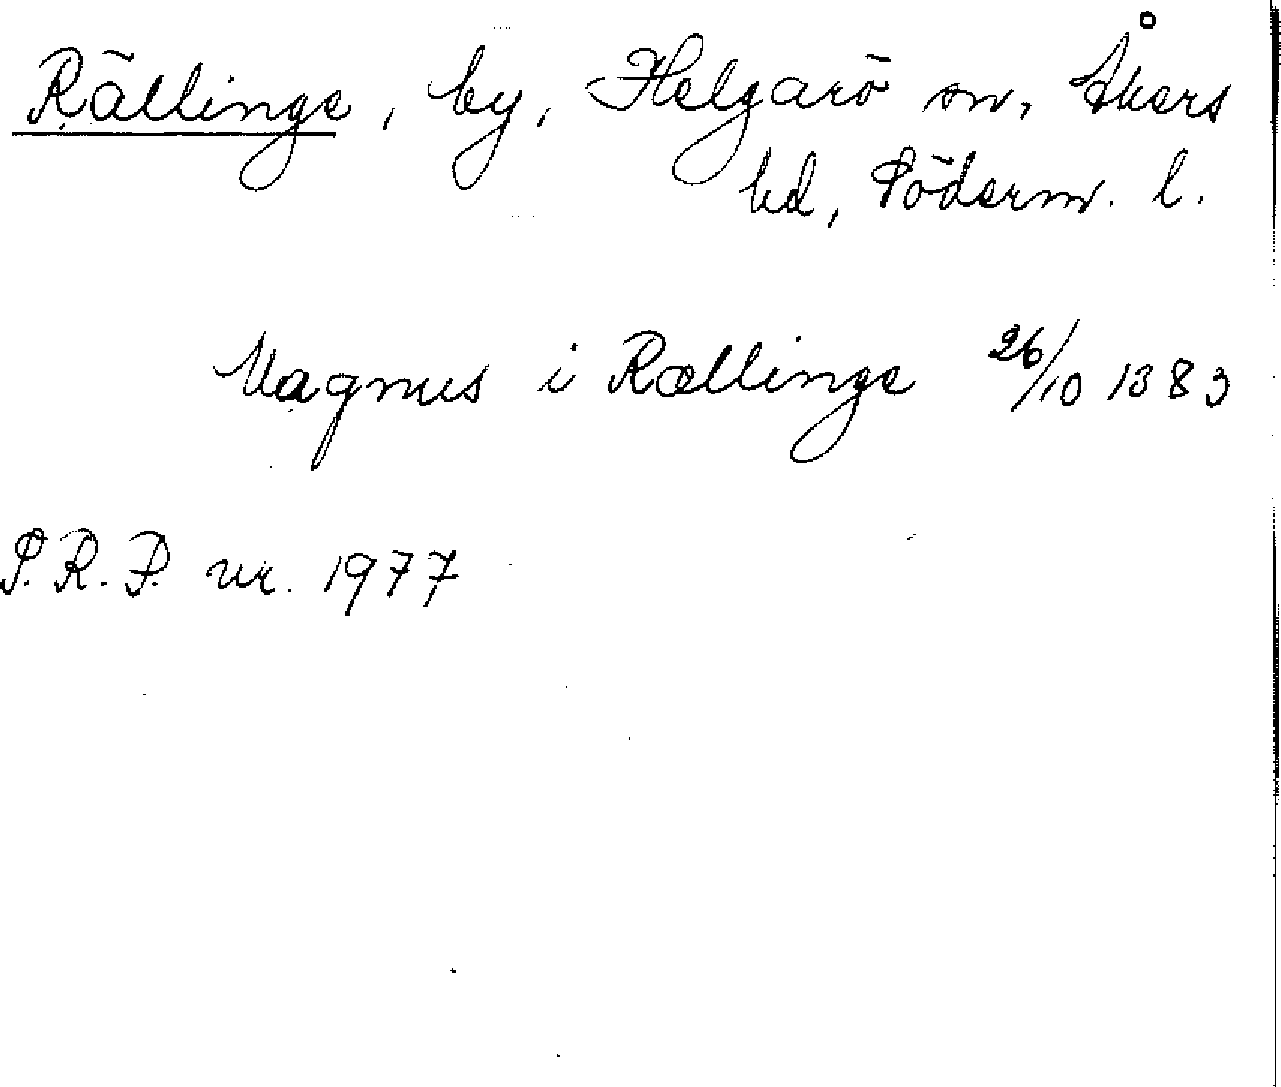 Rällinge, by, Helgarö sn, Åkers
hd, Söderm. l.
Magnus i Rællinge 26/10 1383
S.R.P. nr. 1977